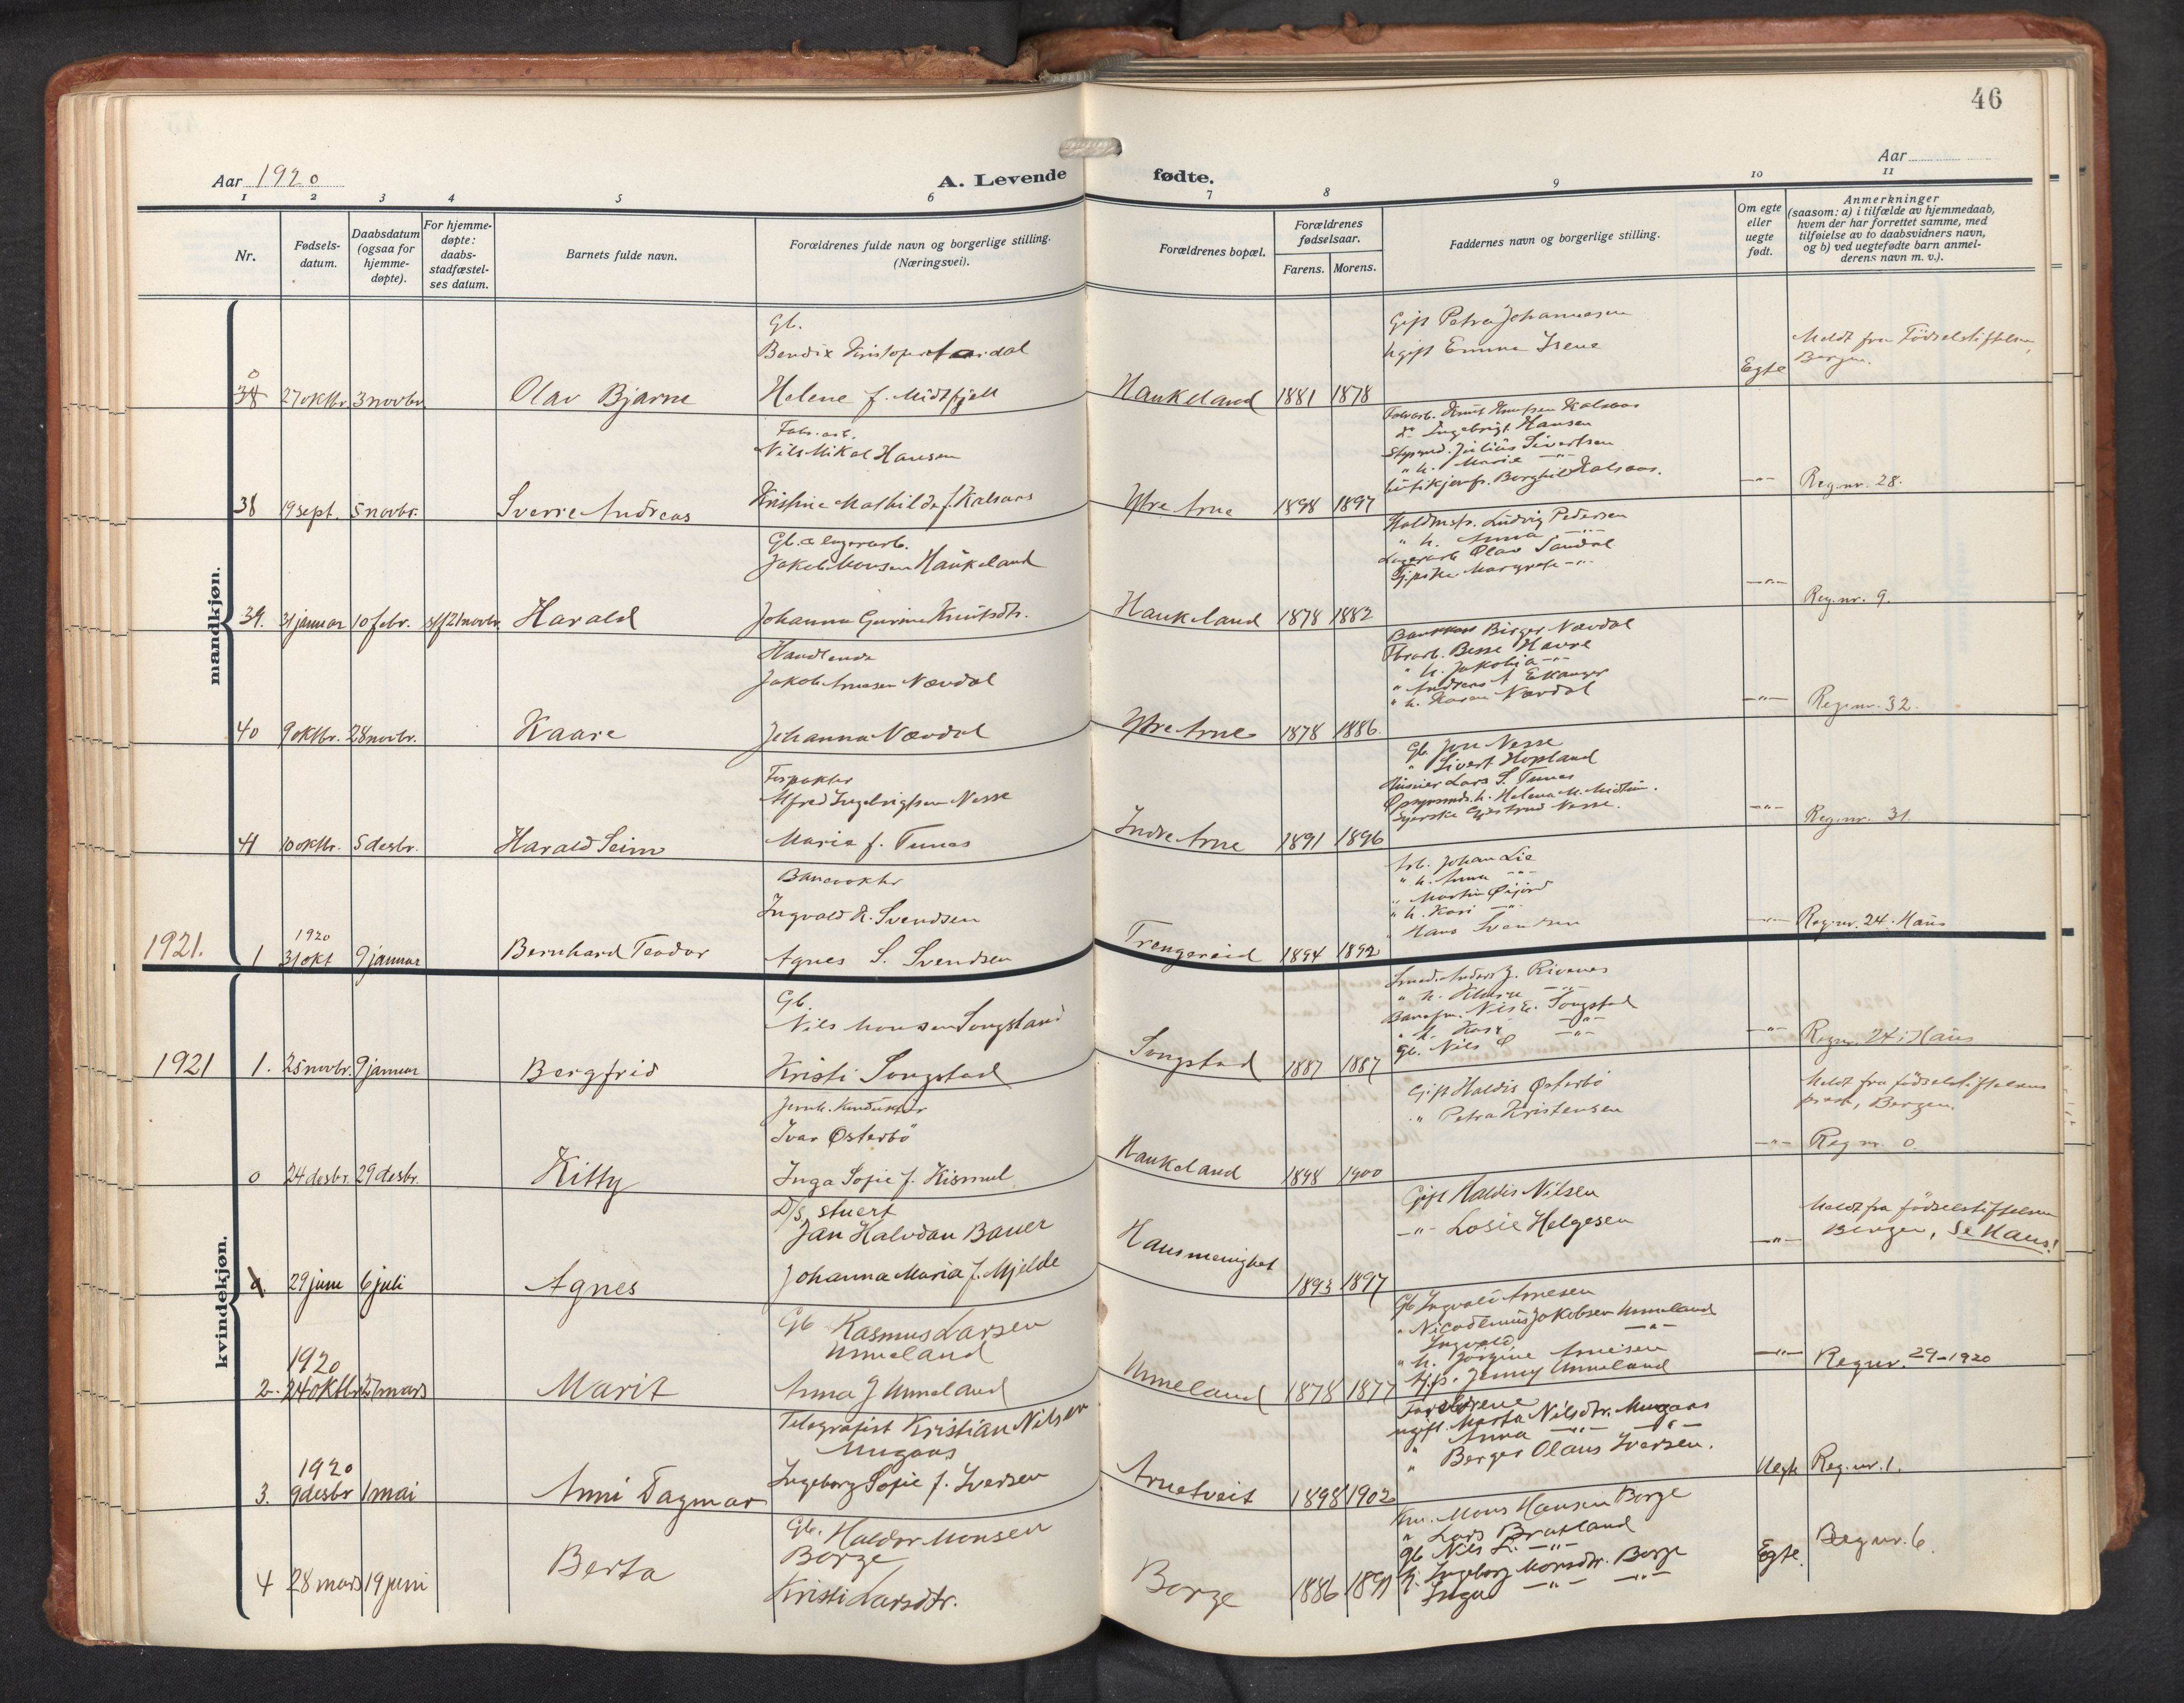 46
Aar 1920
A. Levende fødte.
Aar
1 2 3 4 5 6 7 8 9 10 11
Nr.
Fødsels-
datum.
Daabsdatum
(ogsaa for
hjemme-
døpte).
For hjemme-
døpte:
daabs-
stadfæstel-
ses datum.
Barnets fulde navn.
Forældrenes fulde navn og borgerlige stilling.
(Næringsvei).
Forældrenes bopæl.
Forældrenes
fødselsaar.
Farens. Morens.
Faddernes navn og borgerlige stilling.
Om egte
eller
uegte
født.
Anmerkninger
(saasom: a) i tilfælde av hjemmedaab,
hvem der har forrettet samme, med
tilføielse av to daabsvidners navn,
og b) ved uegtefødte barn anmel-
derens navn m. v.).
mandkjøn.
Gb.
Bendix
0
38 27 oktbr. 3 novbr. Olav Bjarne
Helene f. Midtfjell
Haukeland 1881 1878
Gift Petra Johannesen
Ugift Emma Irene
Egte
Meldt fra Födselstiftelsen,
Bergen.
Fabr. arb.
Nils Mikal Hansen
38 19 sept. 5 novbr. Sverre Andreas
Kristine Mathilde f. Kalsaas
Ytre Arne 1898 1897
Fabrarb. Knut Knutsen Kalsaas
do Ingebrigt Hansen
Julius Sivertsen
" h. Marie -"-
Borghild Kalsaas.
-"- Reg. nr. 28.
Gb. & lagerarb.
Jakob Monsen Haukeland
39. 31 januar 10 febr. 21 novbr. Harald
Johanna Gurine Knutsdtr.
Haukeland 1878 1882
Ludvig Pedersen
" h. Anna -"-
Lagerarb Olav Sandal
Margrete -"-
-"- Reg. nr. 9.
Handlende
Jakob Arnesen Nævdal
40 9 oktbr. 28 novbr. Kaare
Johanna Nævdal
Ytre Arne 1878 1886.
Birger Nævdal
Fbrarb. Besse Havre
" h. Jakobia -"-
" Andreas A Ekanger
" h. Karen Nævdal
-"- Reg. nr. 32.
Forpakter
Alfred Ingebrigtsen Nesse
41 10 oktbr. 5 desbr. Harald Seim
Maria f. Tunes
Indre Arne 1891 1896
Gb. Jon Nesse
" Sivert Hopland
Lars S. Tunes
h. Helena M. Midttun.
Nesse.
-"- Reg. nr. 31.
Banevokter
Ingvald K. Svendsen
1921.
1920
1 31 okt 9 januar Bernhard Teodor
Agnes S. Svendsen
Trengereid 1894 1892
Arb. Johan Lie
" h. Anna -"-
" Martin Øijord
" h. Kari -"-
Hans Svendsen
-"- Reg. nr. 24. Haus
kvindekjøn.
Gb.
Nils Monsen Songstad
1921 1. 25 novbr. 9 januar Bergfrid
Kristi Songstad
Songstad 1887 1887
Smed. Anders J. Rivenes
" h.
Nils E. Songstad
" h. Kari -"-
Gb. Nils S -"-
-"- Reg. nr. 24 i Haus
Jernb. Konduktør
Ivar Østerbö
0 24 desbr. 29 desbr. Kitty
Inga Sofie f. Kismul
Haukeland 1898 1900
Gift Haldis Østerbö
" Petra Kristensen
Meldt fra födselstiftelsens
prest, Bergen.
-"- Reg. nr. 0.
D/s, stuert
Jan Halvdan Bauer
0. 29 juni 6 juli Agnes
Johanna Maria f. Mjelde
Haus menighet 1893 1897
Gift Haldis Nilsen
-"- Losie Helgesen
-"-
Meldt fra födselstiftelsen
Bergen, Se Haus!
Gb Rasmus Larsen
Unneland
1920
2. 24 oktbr 27 mars Marit
Anna J Unneland
Unneland 1878 1877
Gb Ingvald Arnesen
" Nicodemus Jakobsen Unneland
" Ingvald -"-
" h. Jörgine Arnesen
Jenny Unneland
-"- Reg nr. 29-1920
Telegrafist Kristian Nilsen
Mugaas
1920
3. 9 desbr 1 mai Anni Dagmar
Ingeborg Sofie f. Iversen
Arnetveit 1898 1902
Forældrene
ugift. Marta Nilsdtr. Mugaas
" Anna -"- -"-
" Berger Olaus Iversen.
Uegte Reg. nr. 1.
Gb. Haldor Monsen
Borge
4 28 mars 19 juni Berta
Kristi Larsdtr.
Borge 1886 1891
Mons Hansen Borge
" Lars Brakland
Gb Nils L. -"-
h. Ingeborg Monsdtr. Borge
Inga -"- -"-
Egte. Reg nr. 6.